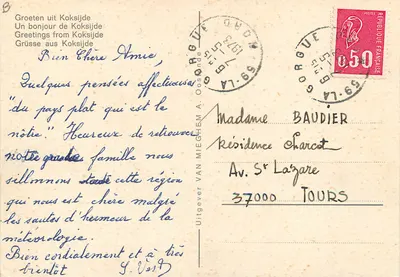 B
Groeten uit Koksijde
Un bonjour de Koksijde
Greetings from Koksijde
Grüsse aus Koksijde
Bien Chère Amie,
Quelques pensées affectueuses
"du pays plat qui est le
nôtre." Heureux de retrouver
notre famille nous
sillonnons cette région
qui nous est chère malgré
les sautes d'humeur de la
météorologie.
Bien cordialement et à très
bientôt
Uitgever VAN MIEGHEM A. Oostende
59-LA GORGUE NORD
1973
59-LA GORGUE
REPUBLIQUE FRANCAISE
0,50
Madame BAUDIER
Résidence Charcot
Av. St Lazare
37000 TOURS